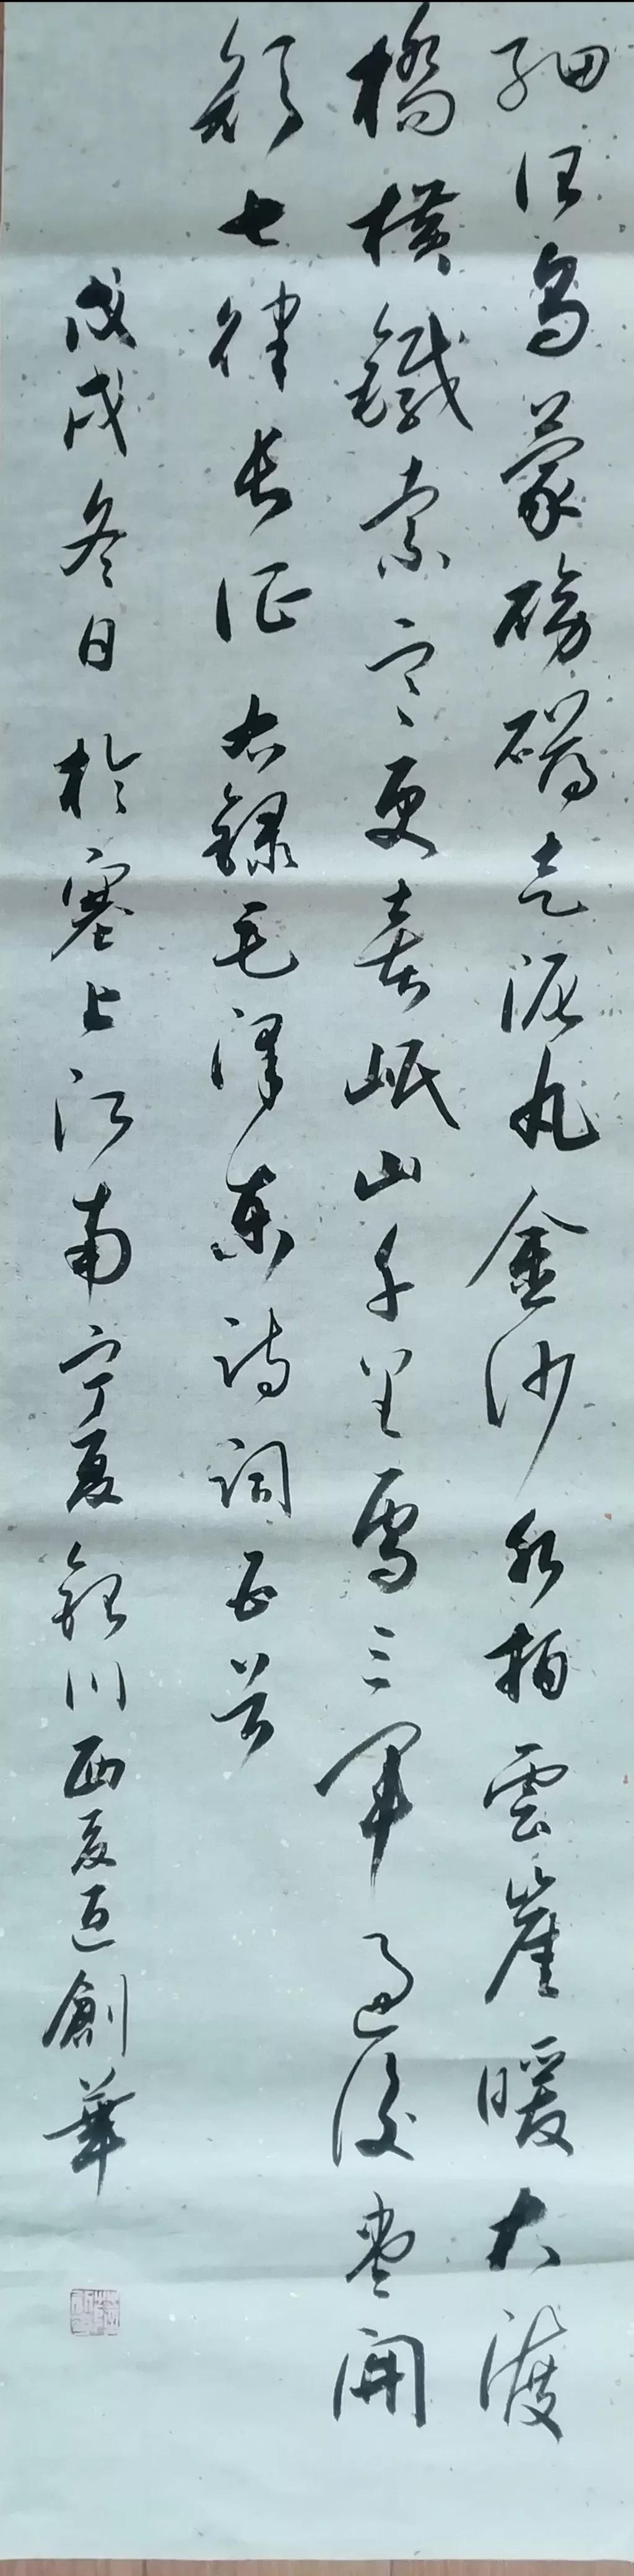 細浪烏蒙磅礴走泥丸金沙水拍雲崖暖大渡
橋横鐵索寒更喜岷山千里雪三軍過後盡開
颜七律长征 右録毛泽東诗词五首
戊戌冬日於塞上江南宁夏銀川西夏区創華